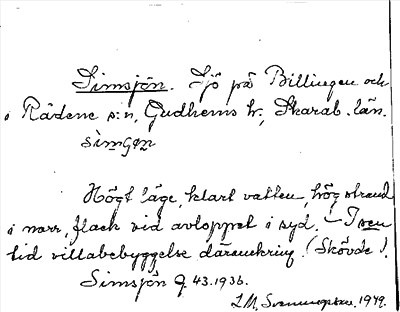 Simsjön. Sjö på Billingen och
i Rådene s:n, Gudhems hr, Skarab. län.
simʃøn
Högt läge, klart vatten, hög strand
i norr, flack vid avloppet i syd. – I sen
tid villabebyggelse däromkring (Skövde).
Simsjön G. 43. 1936.
1949.